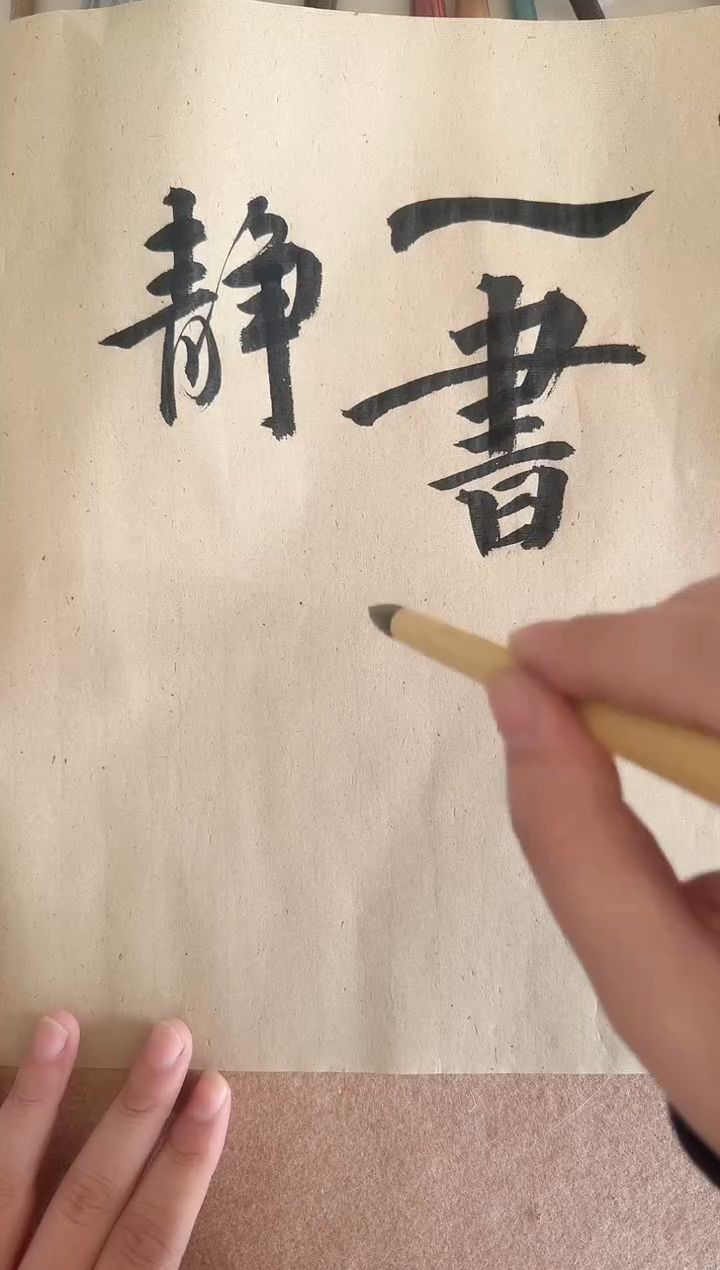 一書
静